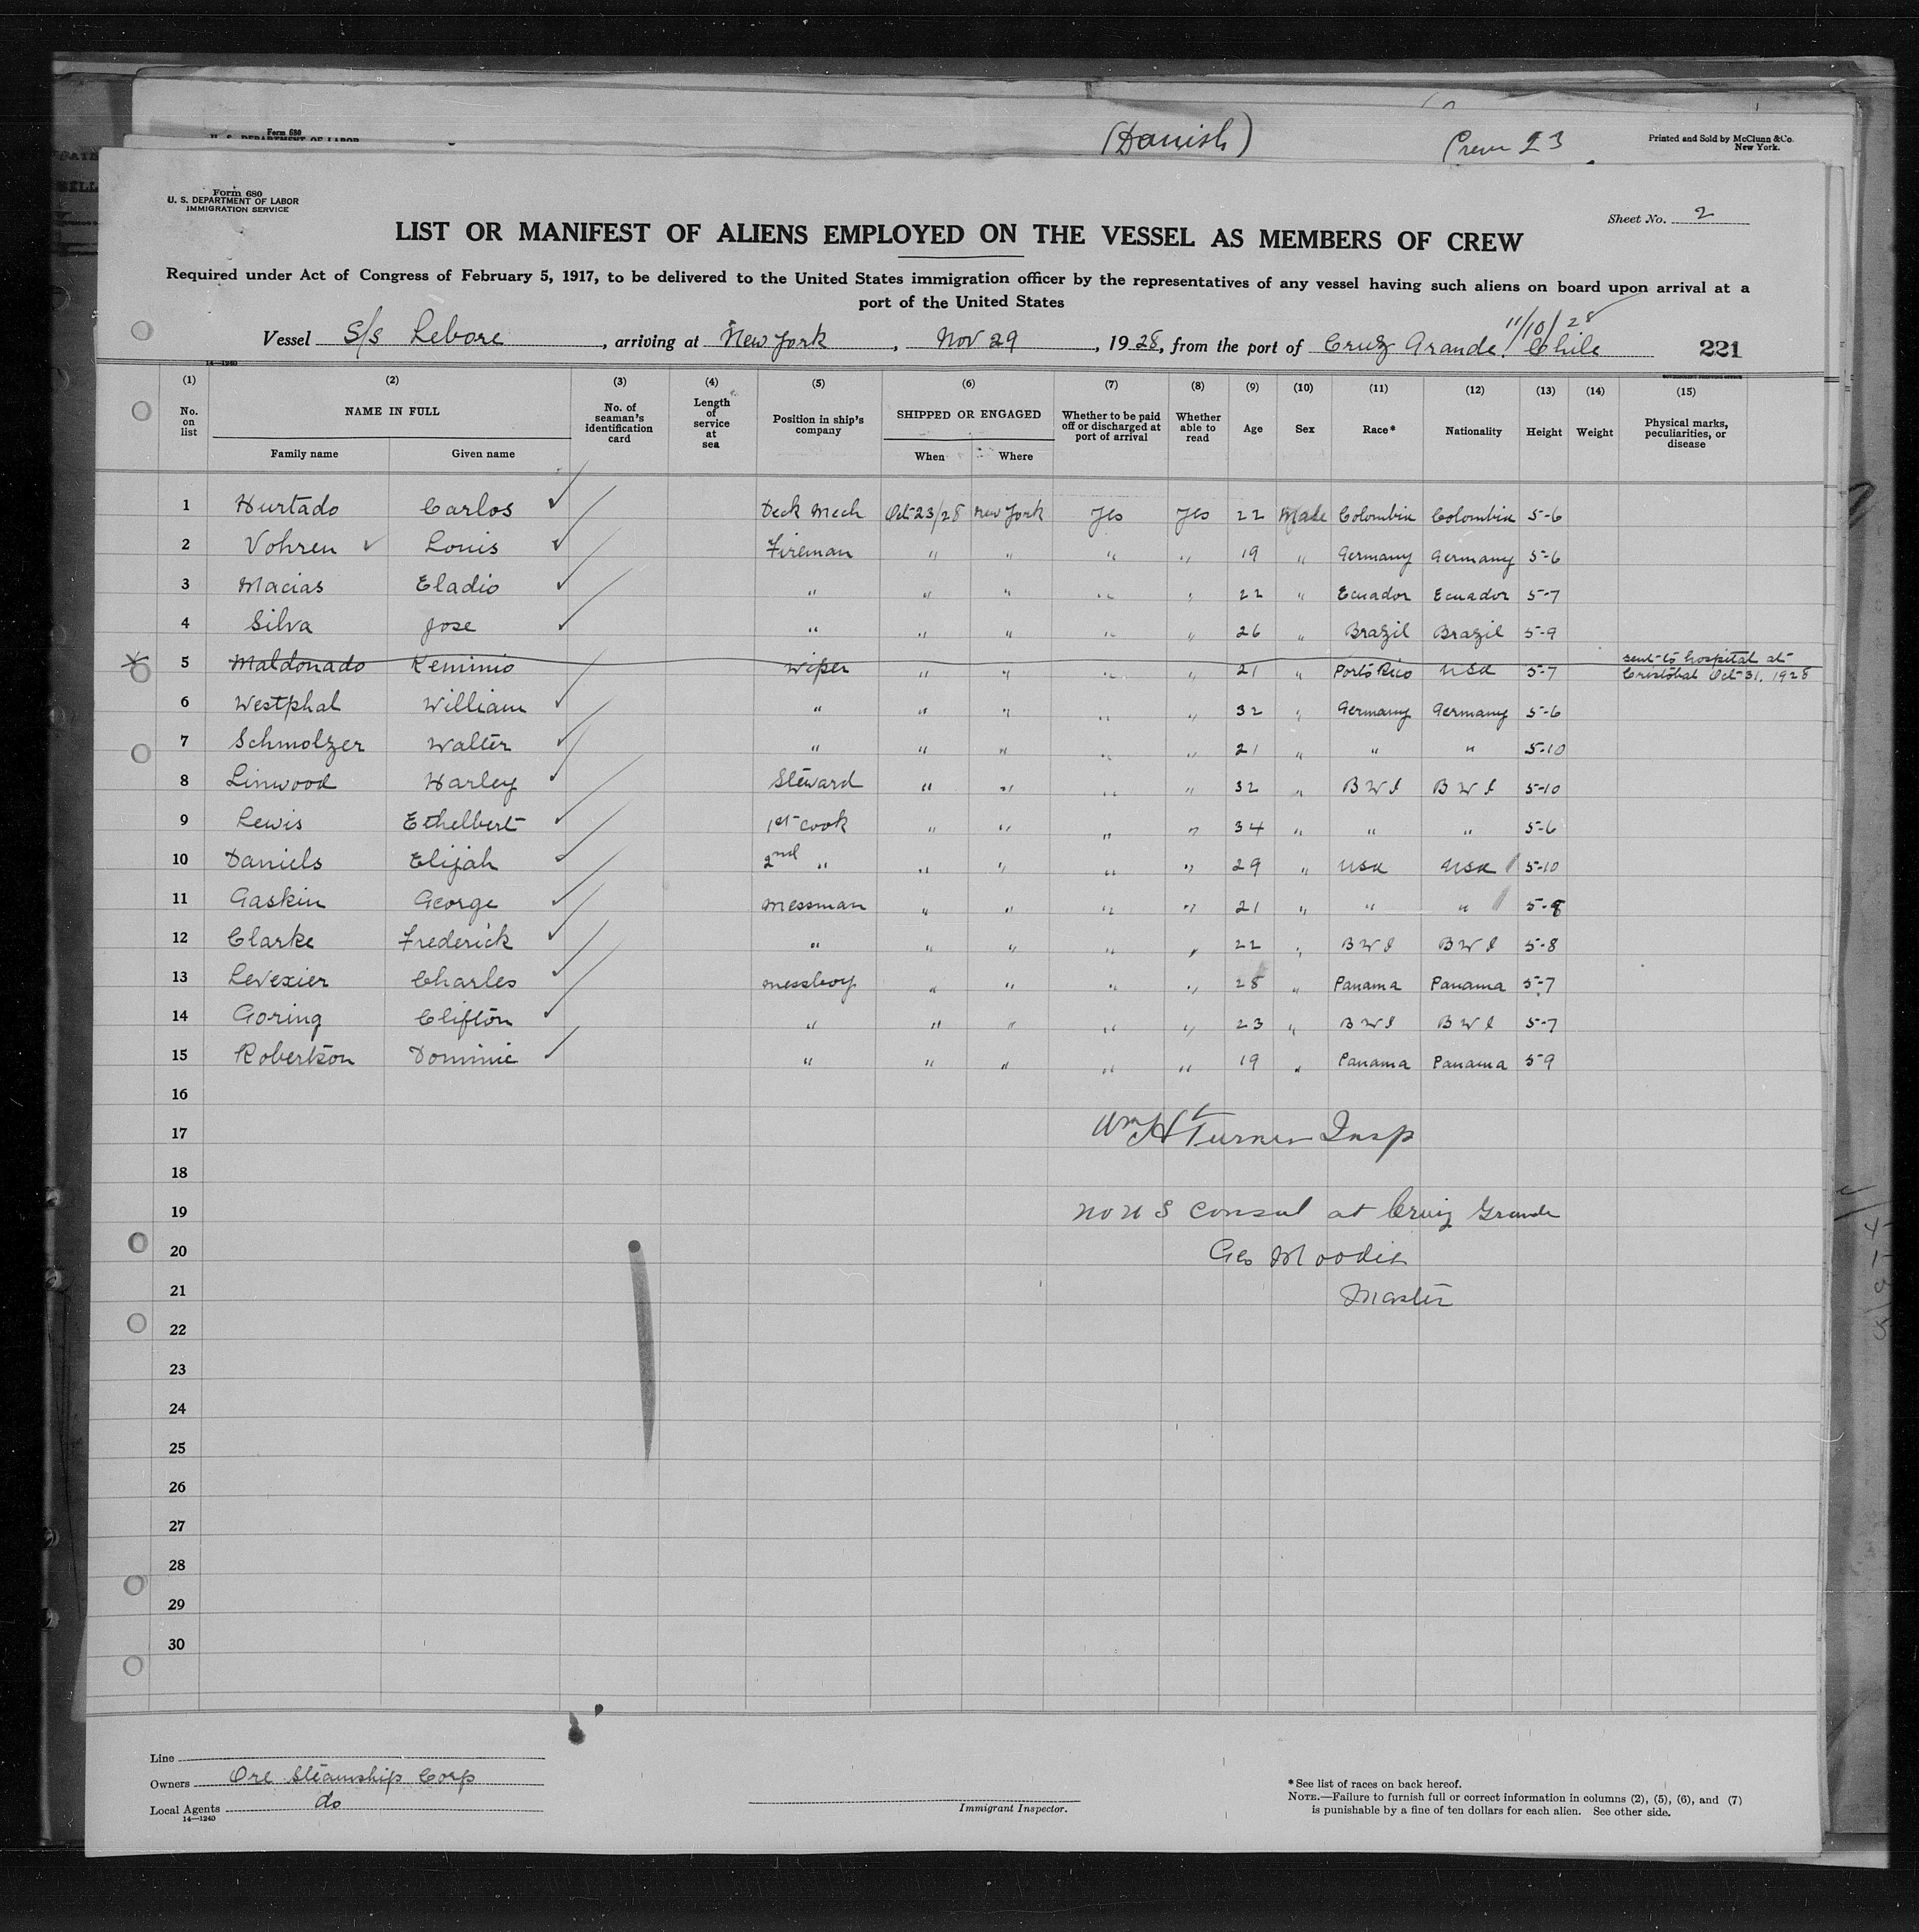 Form 680
U. S. DEPARTMENT OF LABOR
(Danish)
Crew 23
Printed and Sold by McClunn & Co.
New York.
Form 680
U. S. DEPARTMENT OF LABOR
IMMIGRATION SERVICE
Sheet No. 2
LIST OR MANIFEST OF ALIENS EMPLOYED ON THE VESSEL AS MEMBERS OF CREW
Required under Act of Congress of February 5, 1917, to be delivered to the United States immigration officer by the representatives of any vessel having such aliens on board upon arrival at a
port of the United States
11/10/28
Vessel S/s Lebore, arriving at New York, Nov 29, 1928, from the port of Cruz Grande. Chile 221
14—1240
(1) (2) (3) (4) (5) (6) (7) (8) (9) (10) (11) (12) (13) (14) (15)
No. on list NAME IN FULL Family name Given name No. of seaman's identification card Length of service at sea Position in ship's company SHIPPED OR ENGAGED When Where Whether to be paid off or discharged at port of arrival Whether able to read Age Sex Race* Nationality Height Weight Physical marks, peculiarities, or disease
1 Hurtado Carlos ✓ Deck Mech Oct 23/28 New York Yes Yes 22 Male Colombia Colombia 5-6
2 Vohren ✓ Louis ✓ Fireman " " " " 19 " Germany Germany 5-6
3 Macias Eladio ✓ " " " " " 22 " Ecuador Ecuador 5-7
4 Silva Jose ✓ " " " " " 26 " Brazil Brazil 5-9
* 5 Maldonado Keminio Wiper " " " " 21 " Porto Rico USA 5-7 sent to hospital at Cristobal Oct 31. 1928
6 Westphal William ✓ " " " " " 32 " Germany Germany 5-6
7 Schmolzer Walter ✓ " " " " " 21 " " " 5-10
8 Linwood Harley ✓ Steward " " " " 32 " B W I B W I 5-10
9 Lewis Ethelbert ✓ 1st cook " " " " 34 " " " 5-6
10 Daniels Elijah ✓ 2nd " " " " " 29 " USA USA 5-10
11 Gaskin George ✓ Messman " " " " 21 " " " 5-8
12 Clarke Frederick ✓ " " " " " 22 " B W I B W I 5-8
13 Levexier Charles ✓ messboy " " " " 28 " Panama Panama 5-7
14 Goring Clifton ✓ " " " " " 23 " B W I B W I 5-7
15 Robertson Dominic ✓ " " " " " 19 " Panama Panama 5-9
16
17 Wm H Turner Insp
18
19 No U S Consul at Cruz Grande
20 Geo Moodie
21 Master
22
23
24
25
26
27
28
29
30
Line
Owners Ore Steamship Corp
Local Agents do
14—1240
Immigrant Inspector.
*See list of races on back hereof.
NOTE.—Failure to furnish full or correct information in columns (2), (5), (6), and (7)
is punishable by a fine of ten dollars for each alien. See other side.